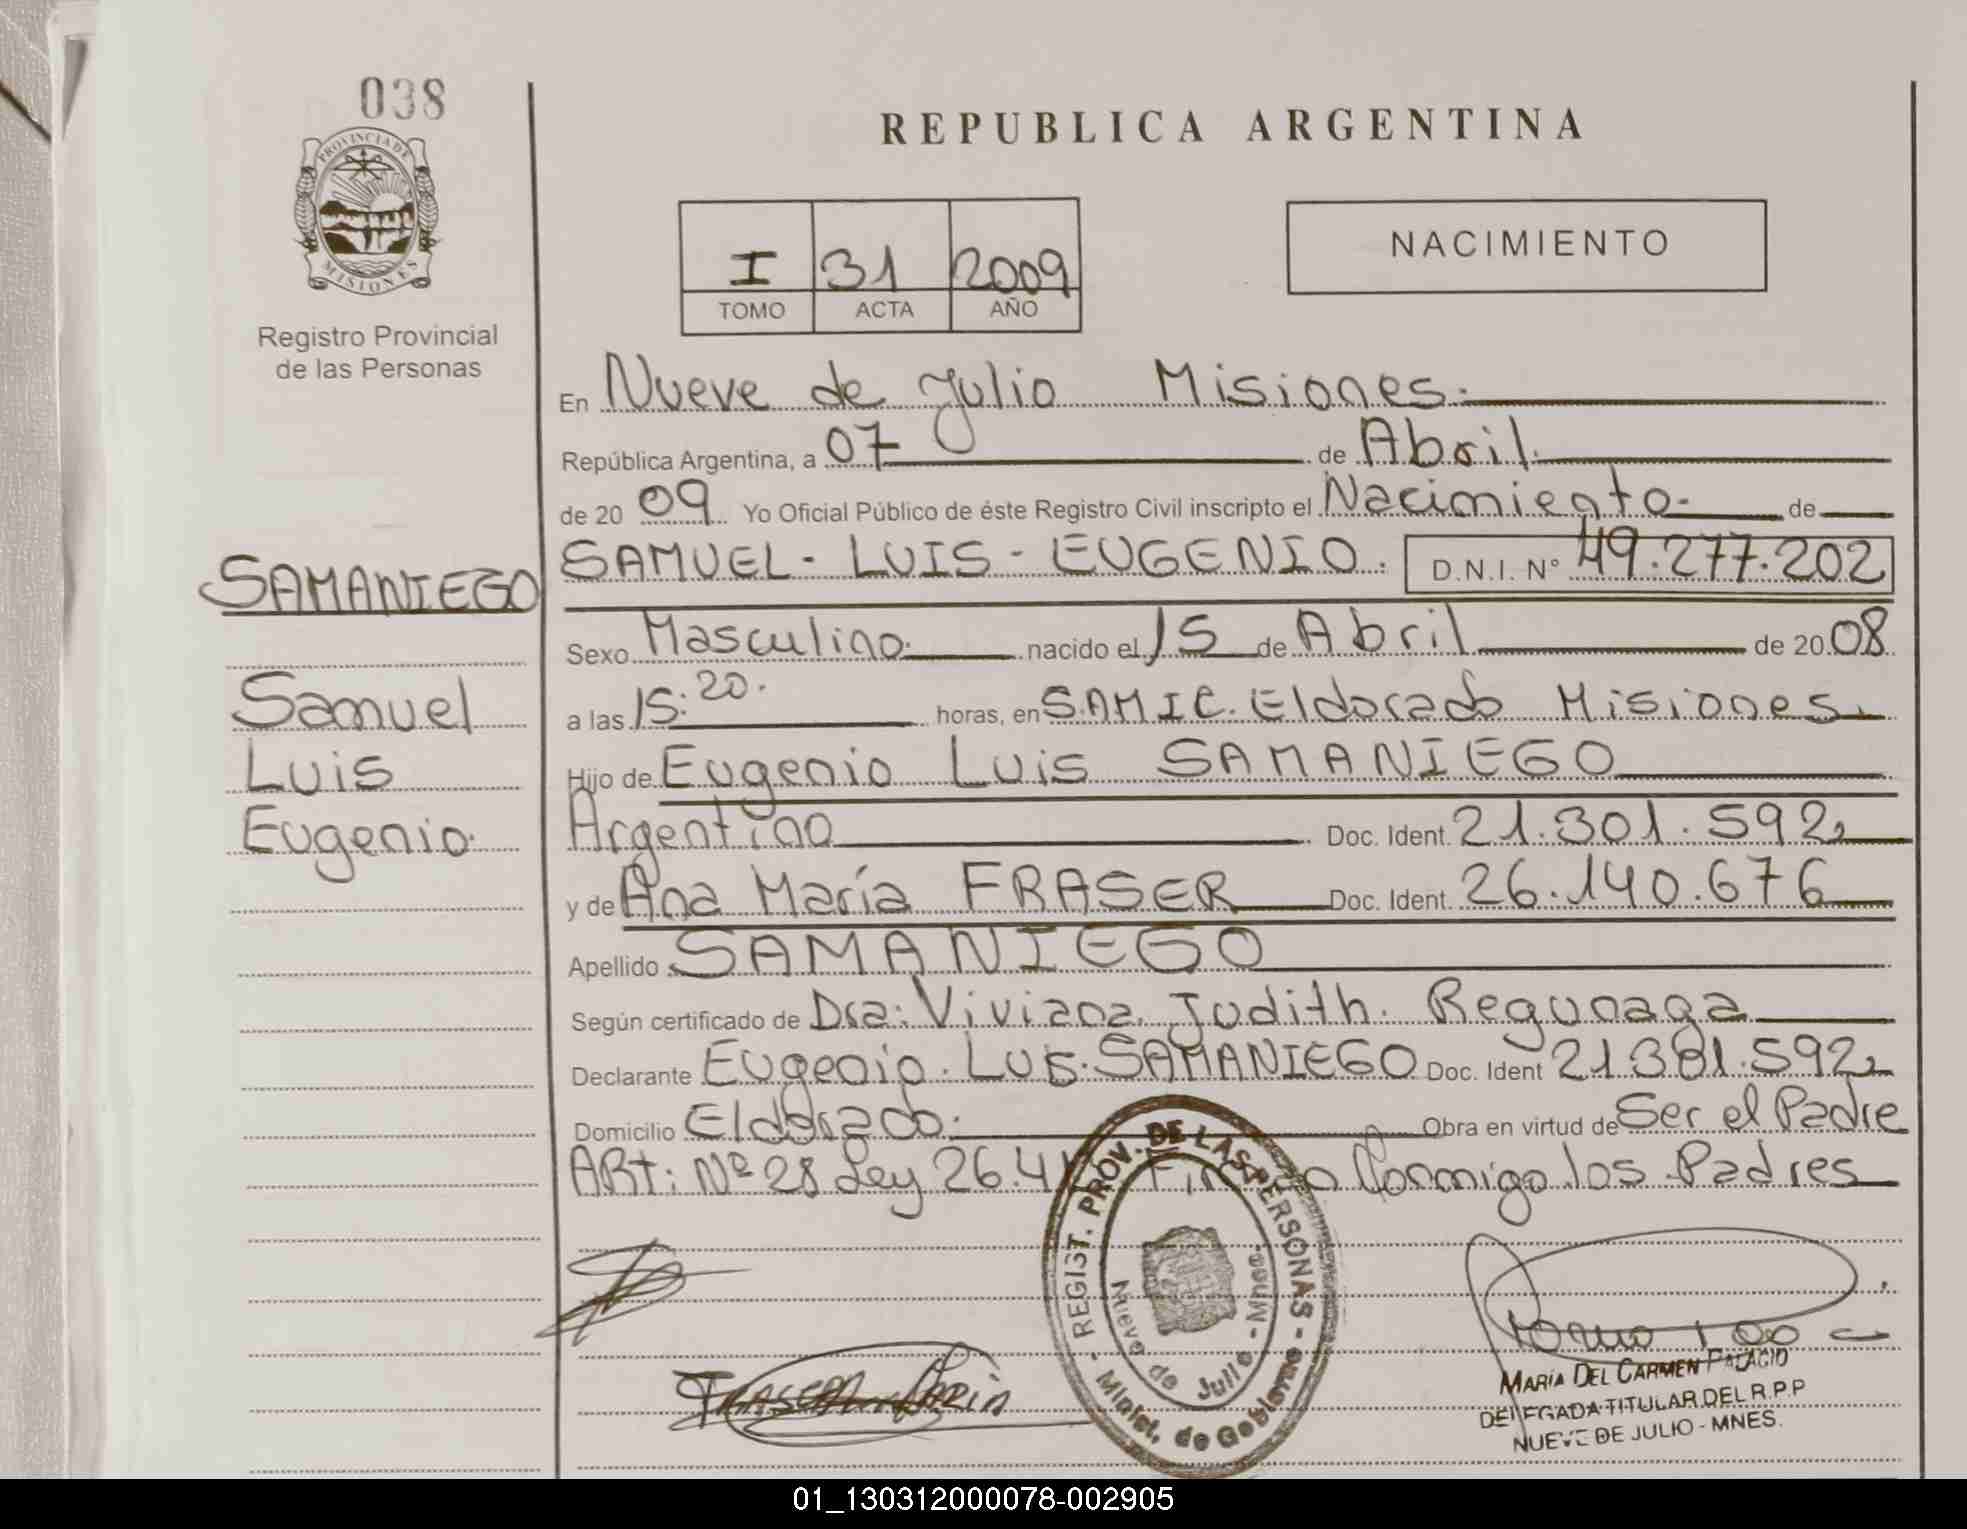 038
PROVINCIA DE
MISIONES
Registro Provincial
de las Personas
REPUBLICA ARGENTINA
I 31 2009
TOMO ACTA AÑO
NACIMIENTO
En Nueve de Julio Misiones.
República Argentina, a 07 de Abril.
de 20 09 Yo Oficial Público de éste Registro Civil inscripto el Nacimiento- de
SAMUEL - LUIS - EUGENIO. D.N.I. N° 49.277.202
SAMANIEGO
Sexo Masculino. nacido el 15 de Abril de 20 08
a las 15:20. horas, en S.A.M.I.C. Eldorado Misiones.
Samuel
Luis
Eugenio.
Hijo de Eugenio Luis SAMANIEGO
Argentino Doc. Ident. 21.301.592
y de Ana María FRASER Doc. Ident. 26.140.676
Apellido SAMANIEGO
Según certificado de Dra: Viviana Judith. Regunaga
Declarante Eugenio. Luis. SAMANIEGO Doc. Ident 21.301.592
Domicilio Eldorado. Obra en virtud de Ser el Padre
ARt: Nº 28 Ley 26.4 Conmigo los Padres
REGIST. PROV. DE LAS PERSONAS - Minist. de Gobierno -
Nueve de Julio - Mnes.
MARÍA DEL CARMEN PALACIO
DELEGADA TITULAR DEL R.P.P
NUEVE DE JULIO - MNES.
01_130312000078-002905